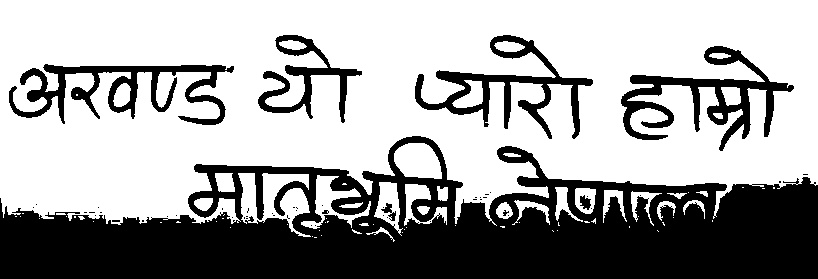 अखण्ड यो प्यारो हाम्रो
मातृभूमि नेपाल